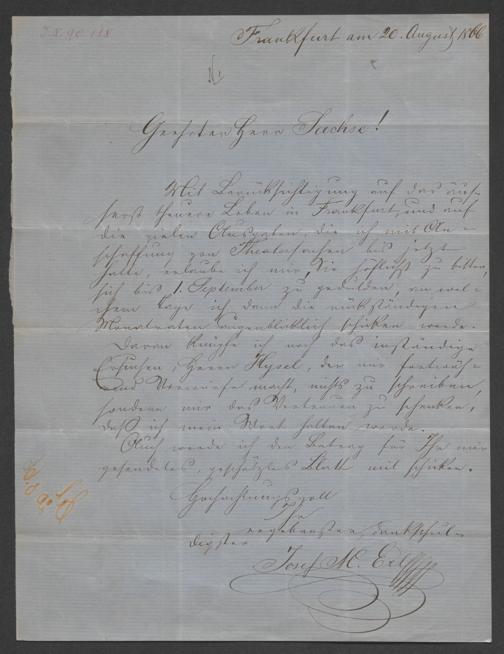 I.N. 90.118
Frankfurt am 20. August 1866
Geehrter Herr Sachse!
Mit Berücksichtigung auf das äu-
ßerst theuere Leben in Frankfurt, und auf
die vielen Ausgaben, die ich mit An-
schaffung von Theatersachen bis jetzt
hatte, erlaube ich mir, Sie höflichst zu bitten,
sich bis 1. September zu gedulden, an wel-
chem Tage ich dann die rückständigen
Monatraten augenblicklich schicken werde.
Daran knüpfe ich noch das inständige
Ersuchen, Herrn Hysel, der mir fortwäh-
rend Vorwürfe macht, nichts zu schreiben,
sondern mir das Vertrauen zu schenken,
daß ich mein Wort halten werde.
Auch werde ich den Betrag für Ihr mir
gesendetes, geschätztes Blatt mit schicken.
Hochachtungsvoll
Ihr
ergebenster, dankschul-
digster
Josef M. Erl